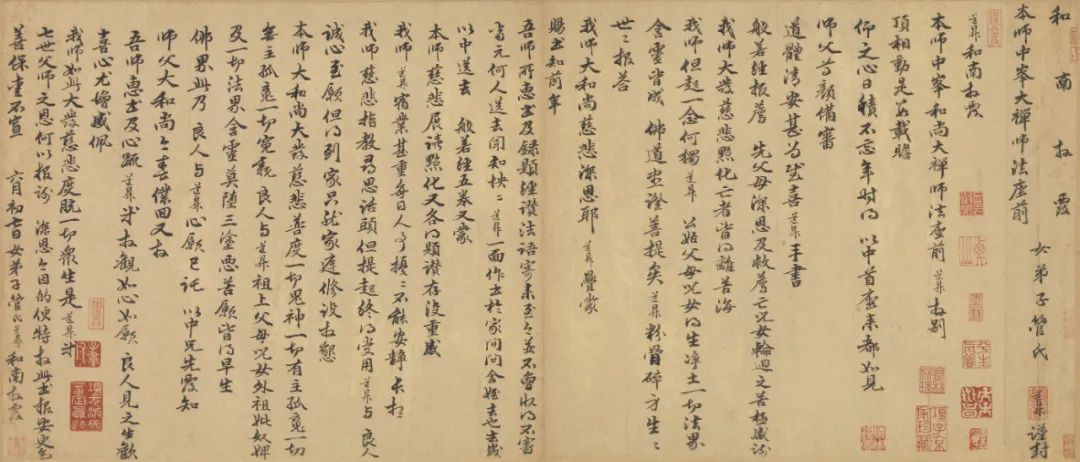 和南拜覆
本師中峯大禪師法座前 女弟子管氏道昇謹封
道昇和南拜覆
本師中峯和尚大禪師法座前 道昇拜別
頂相動是數載瞻
仰之心日積不忘年時得 以中首座來都如見
師父尊顏備審
道體清安甚爲忻喜道昇手書
般若經報薦 先父母深恩及救薦亡兒女輪迴之苦極感謝
我師大和尚大發慈悲點化亡者皆得離苦海
我師但起一念何獨道昇 公姑父母兒女得生淨土一切法界
含靈皆成 佛道盡證菩提矣道昇粉骨碎身生〻
世〻報答
我師大和尚慈悲深恩耶道昇疊蒙
賜書知前年
吾師所惠書及錄題經讚法語寄來至今並不曾收得不審
當元何人送去聞知怏〻道昇一面作書於家間問舍姪去也去歲
以中送去 般若經五卷又蒙
本師慈悲展誦點化又各得題讚存沒重感
我師道昇宿業甚重每日人事擾〻不能安靜長想
我師慈悲指教尋思話頭但提起終得受用道昇与良人
誠心至願但得到家只就家庭修設拜懇
本師大和尚大發慈悲普度一切鬼神一切有主孤魂一切
無主孤魂一切冤親良人与道昇祖上父母兒女外祖妣奴婢
及一切法界含靈莫墮三塗惡苦願皆得早生
佛界此乃 良人与道昇心願已託 以中兄先覆知
師父大和尚今春僕回又拜
吾師惠書及心疏道昇等拜觀如心如願良人見之生歡
喜心尤增感佩
我師如此大發慈悲度脫一切衆生是道昇等
七世父師之恩何以報謝 深恩今因的便特拜此書报安更乞
善保重不宣 六月初吉日女弟子管氏道昇和南拜覆